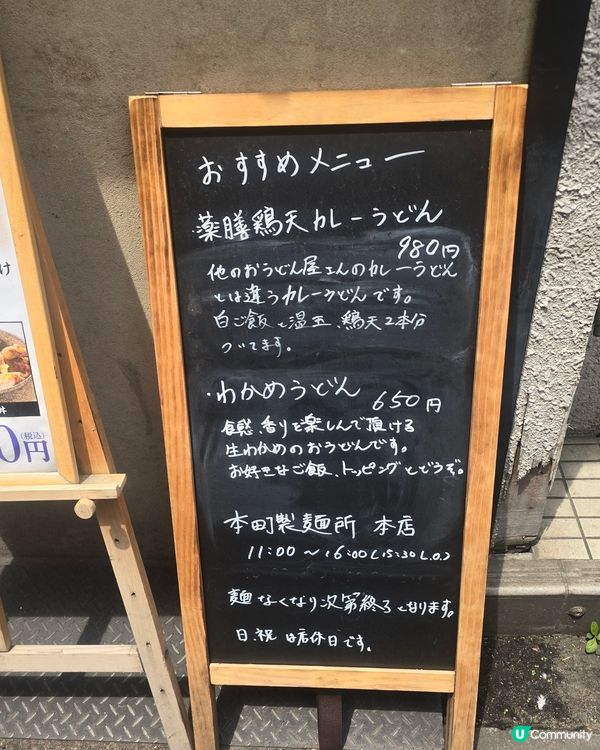 おすすめメニュー
・薬膳鶏天カレーうどん
980円
他のおうどん屋さんのカレーうどん
とは違うカレーうどんです。
白ご飯と温玉、鶏天2本分
ついてます。
・わかめうどん
650円
食感、香りを楽しんで頂ける
生わかめのおうどんです。
お好きなご飯、トッピングとどうぞ。
本町製麺所 本店
11:00〜16:00(15:30 L.O.)
麺なくなり次第終了となります。
日、祝は店休日です。
け
丼
0円
(税込)
U Community